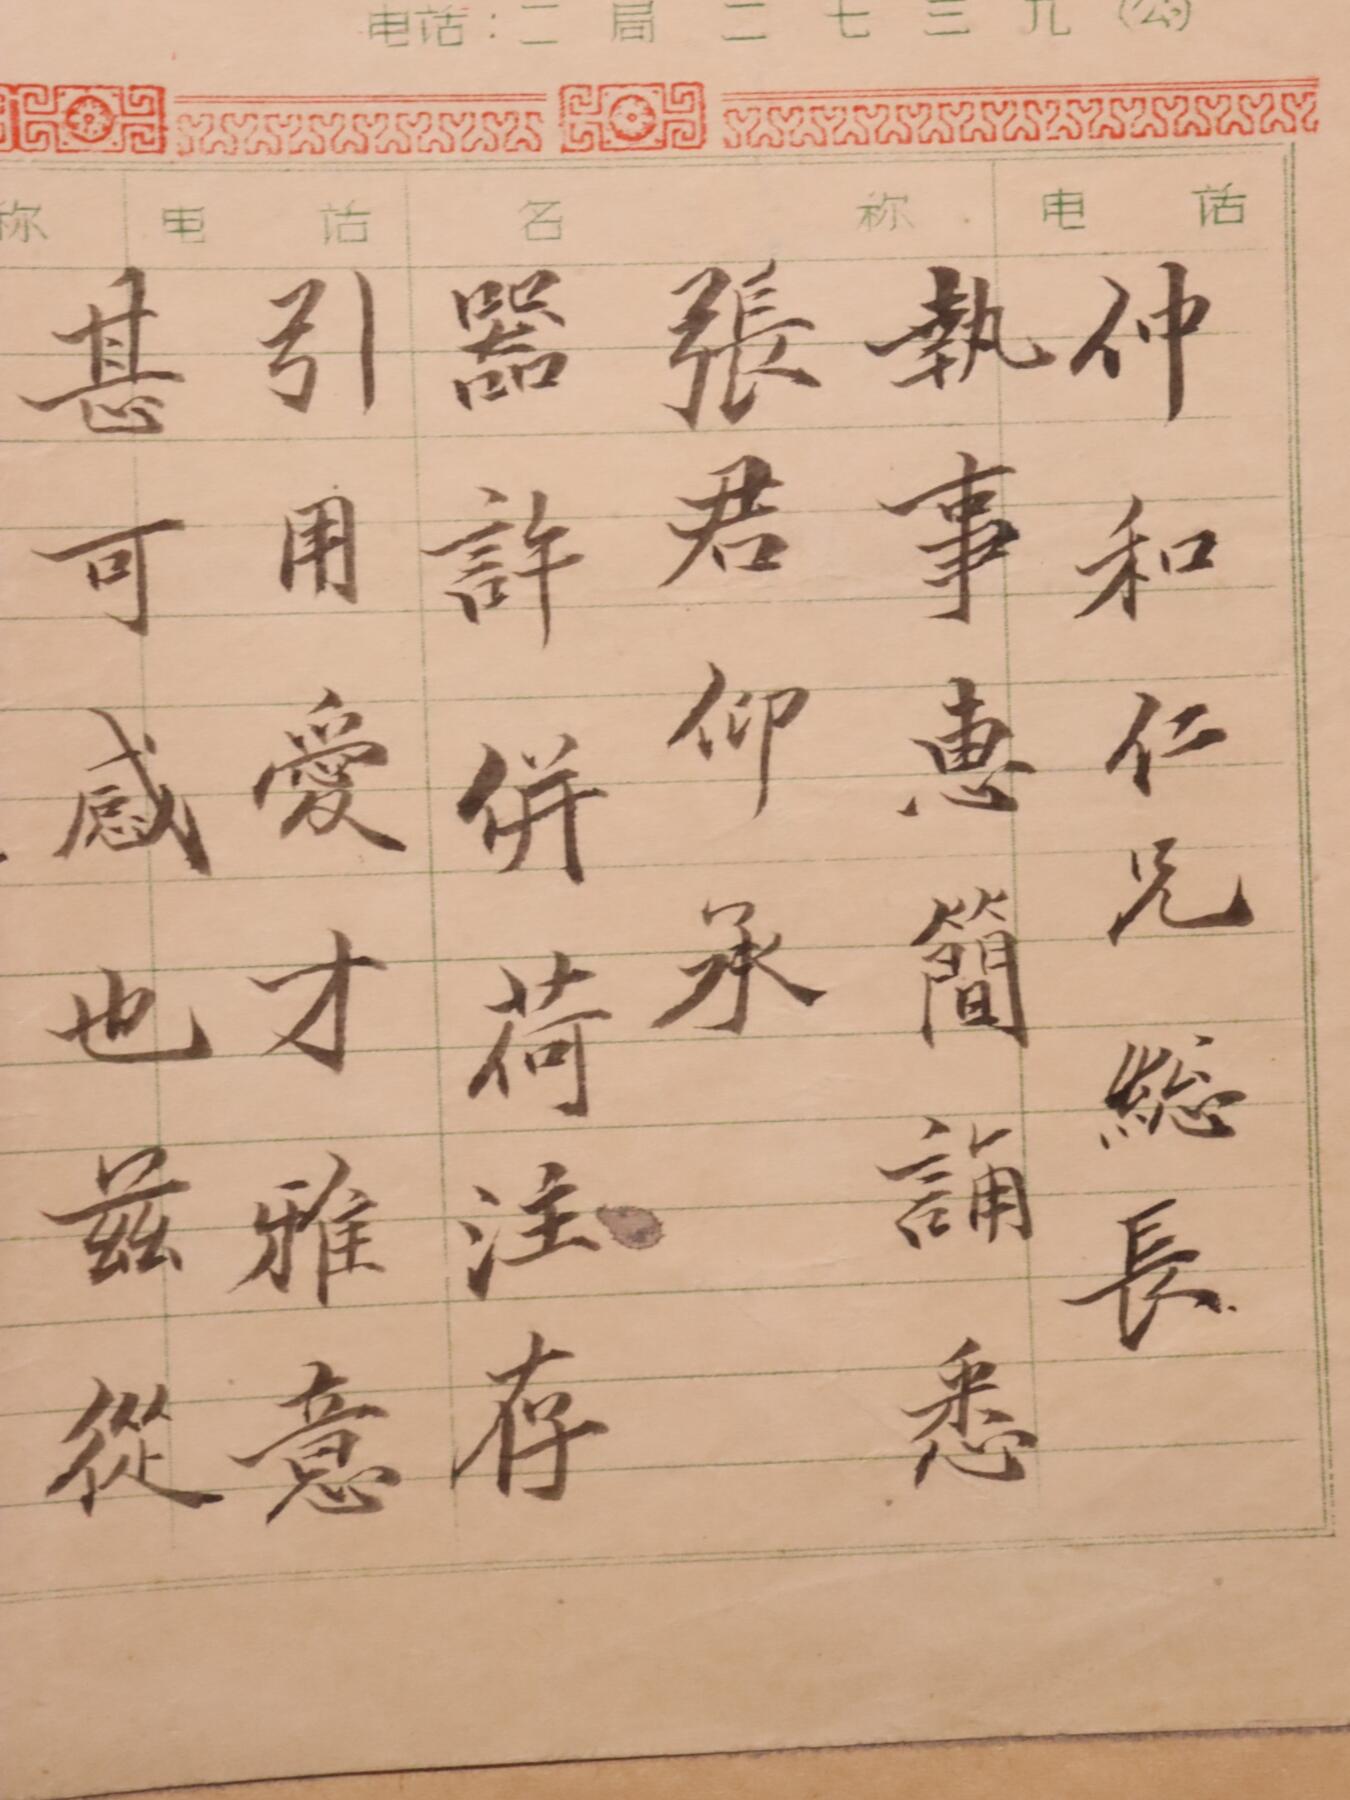 电话：二局二七三九（公）
称 电话 名称 电话
仲和仁兄總長
執事惠簡誦悉
張君仰承
器許併荷注存
引用愛才雅意
甚可感也茲從